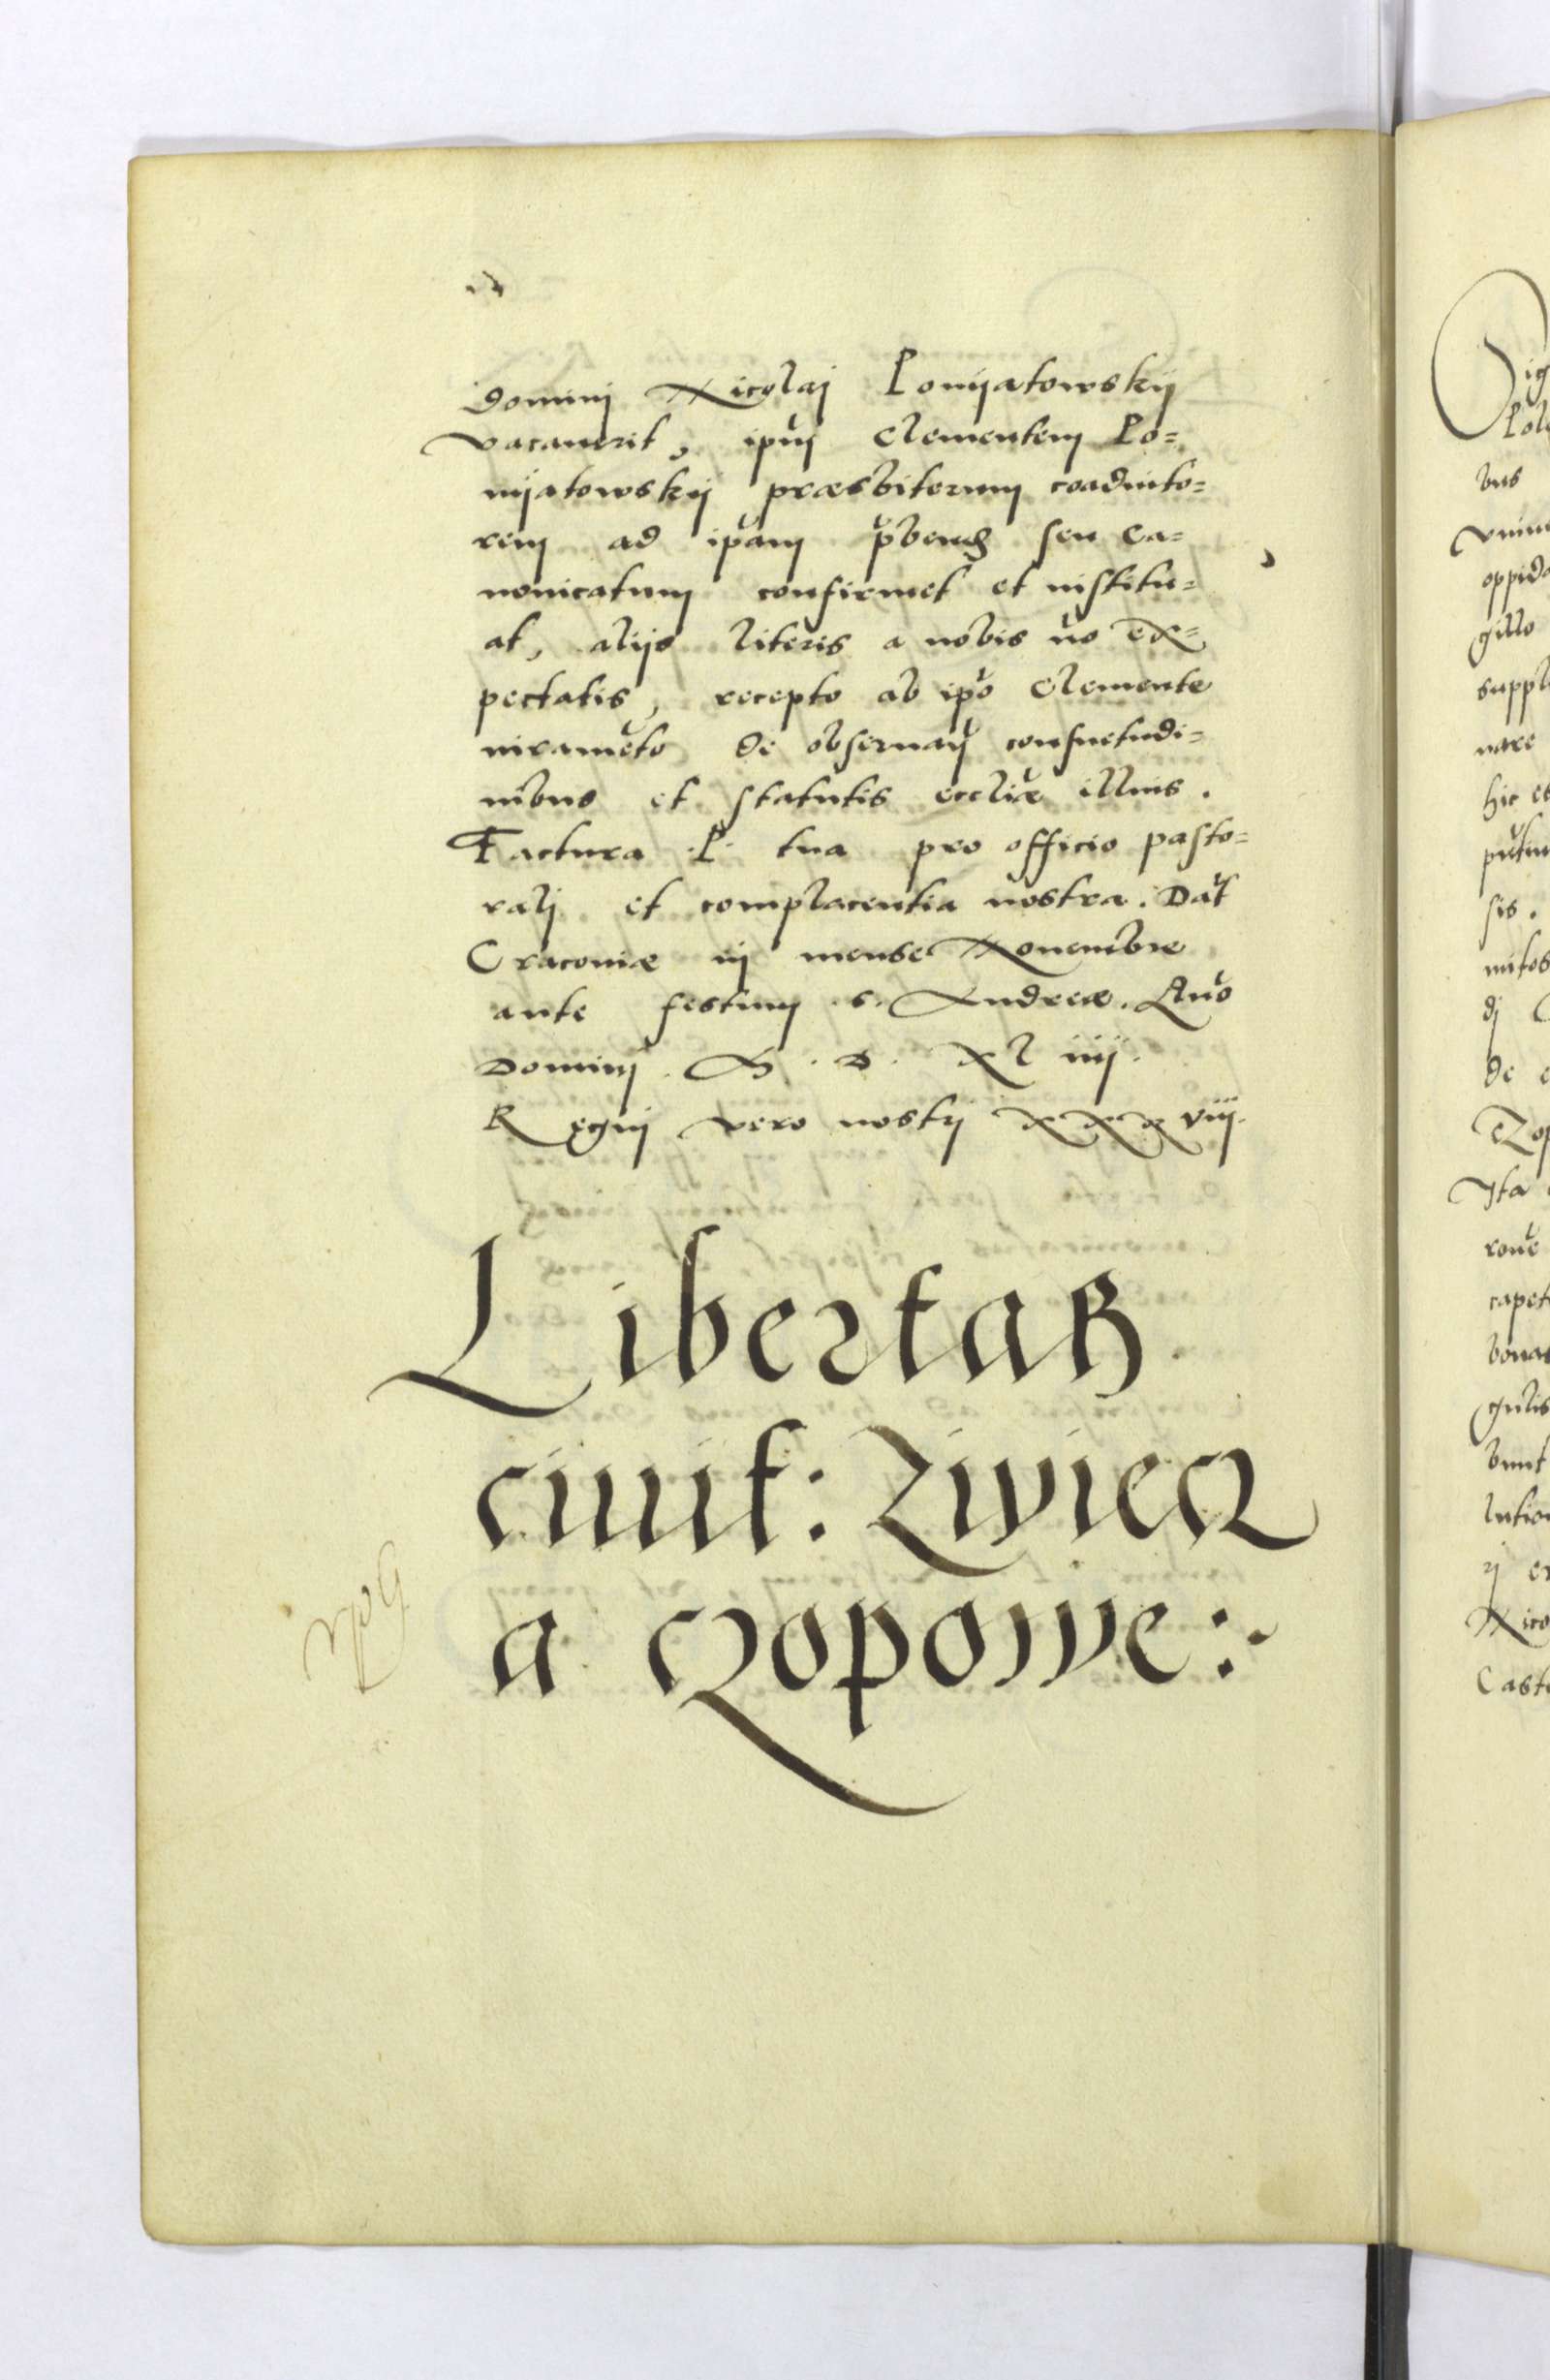 Dominj Nicolaj Ponijatowskij
vacauerit, ipũj Clementem Po=
nijatowskij præsbiterum coadiuto=
rem ad ipãm p̃bend seu Ca=
nonicatum confirmet et institu=
at, alijs literis a nobis nõ ex=
pectatis, recepto ab ipõ Clemente
iuramẽto de obseruãdj consuetudi=
nibus et statutis eccliæ illius.
Factura .P. tua pro officio pasto=
ralj et complacentia nostra. Dat̃
Cracoviæ in mense Nouembre
ante festum S. Andreæ. Año
Dominj. M. D. XL iiij.
Regnj vero nostrj XXX viij.
Libertas
ciuit: Ziviecz
a Czopowe:
bus
oppido
gillo
suppl
hic es
sis.
mitos
dj
de
Czop
Ita
capet
bonas
gulis
bunt
lutio
rj
Nico
Caste